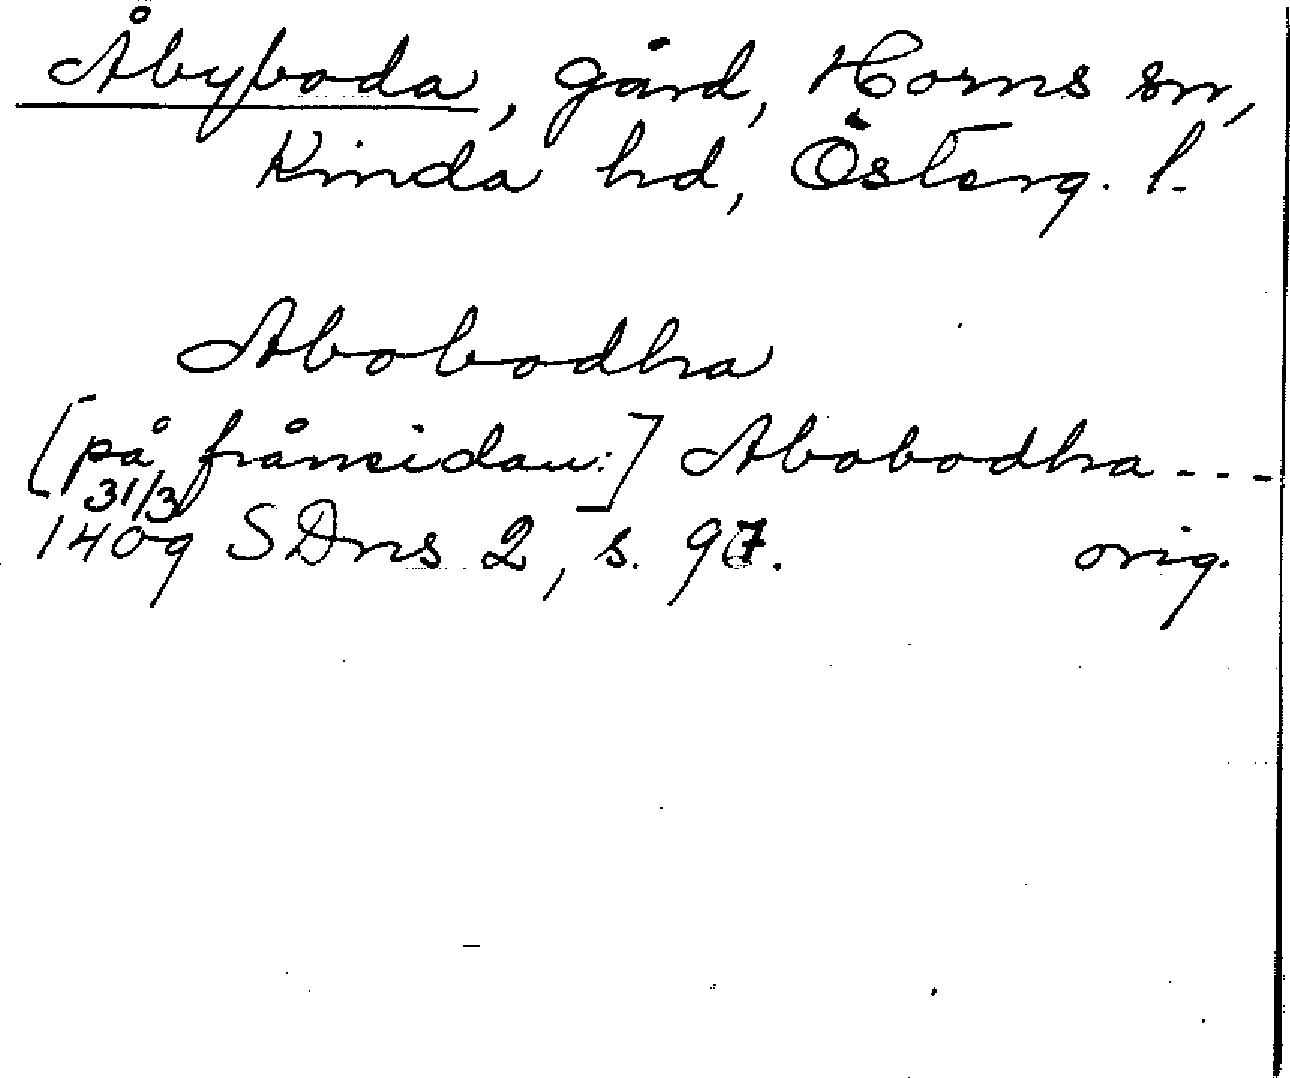 Åbyboda, gård, Horns sn,
Kinda hd, Österg. l.
Abobodha
[på frånsidan:] Abobodha - - -
31/3
1409 SDns 2, s. 97. orig.